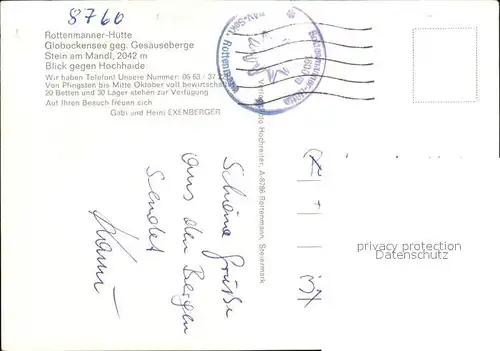 8760
Rottenmanner-Hütte
Globockensee geg. Gesäuseberge
Stein am Mandl, 2042 m
Blick gegen Hochhaide
Wir haben Telefon! Unsere Nummer: 06 63 / 37
Von Pfingsten bis Mitte Oktober voll bewirtschaftet
20 Betten und 30 Lager stehen zur Verfügung
Auf Ihren Besuch freuen sich
Gabi und Heini EXENBERGER
Rottenmann
Hochreiter, A-8786 Rottenmann, Steiermark
Schöne Grüße
aus den Bergen
sendet
privacy protection
Datenschutz